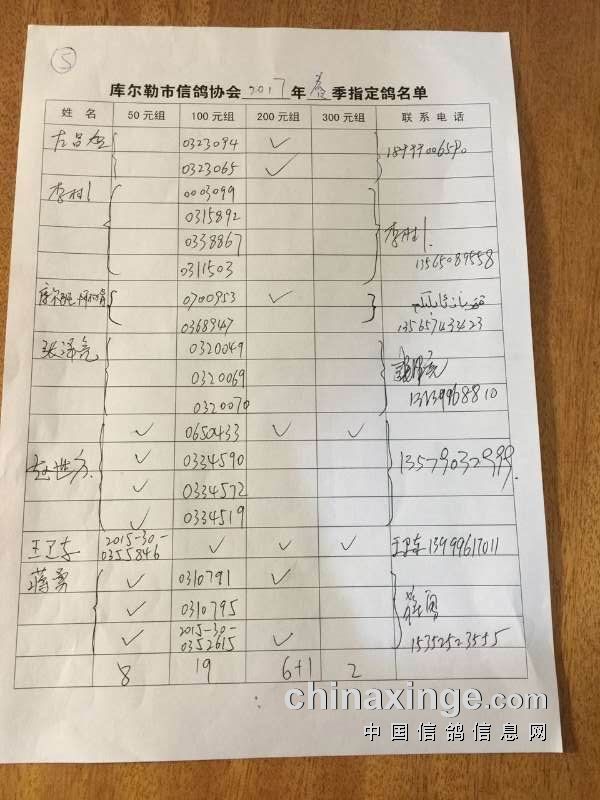 5
库尔勒市信鸽协会 2017 年 春 季指定鸽名单
姓 名 50元组 100元组 200元组 300元组 联系电话
0323094 ✓
0323065 ✓
李 0003099
0315892
0338867
0311503 13565089558
0700953 ✓
0368947 13565743423
张泽亮 0320049
0320069
0320070
✓ 0650433 ✓ ✓
赵世方 ✓ 0334590
✓ 0334572
✓ 0334519
王卫东 2015-30-0355846 ✓ ✓ ✓ 王卫东 13999617011
蒋勇 ✓ 0310791 ✓
✓ 0310795 蒋勇
✓ 2015-30-0352615 ✓ 15352523555
8 19 6+1 2
chinaxinge.com
中国信鸽信息网